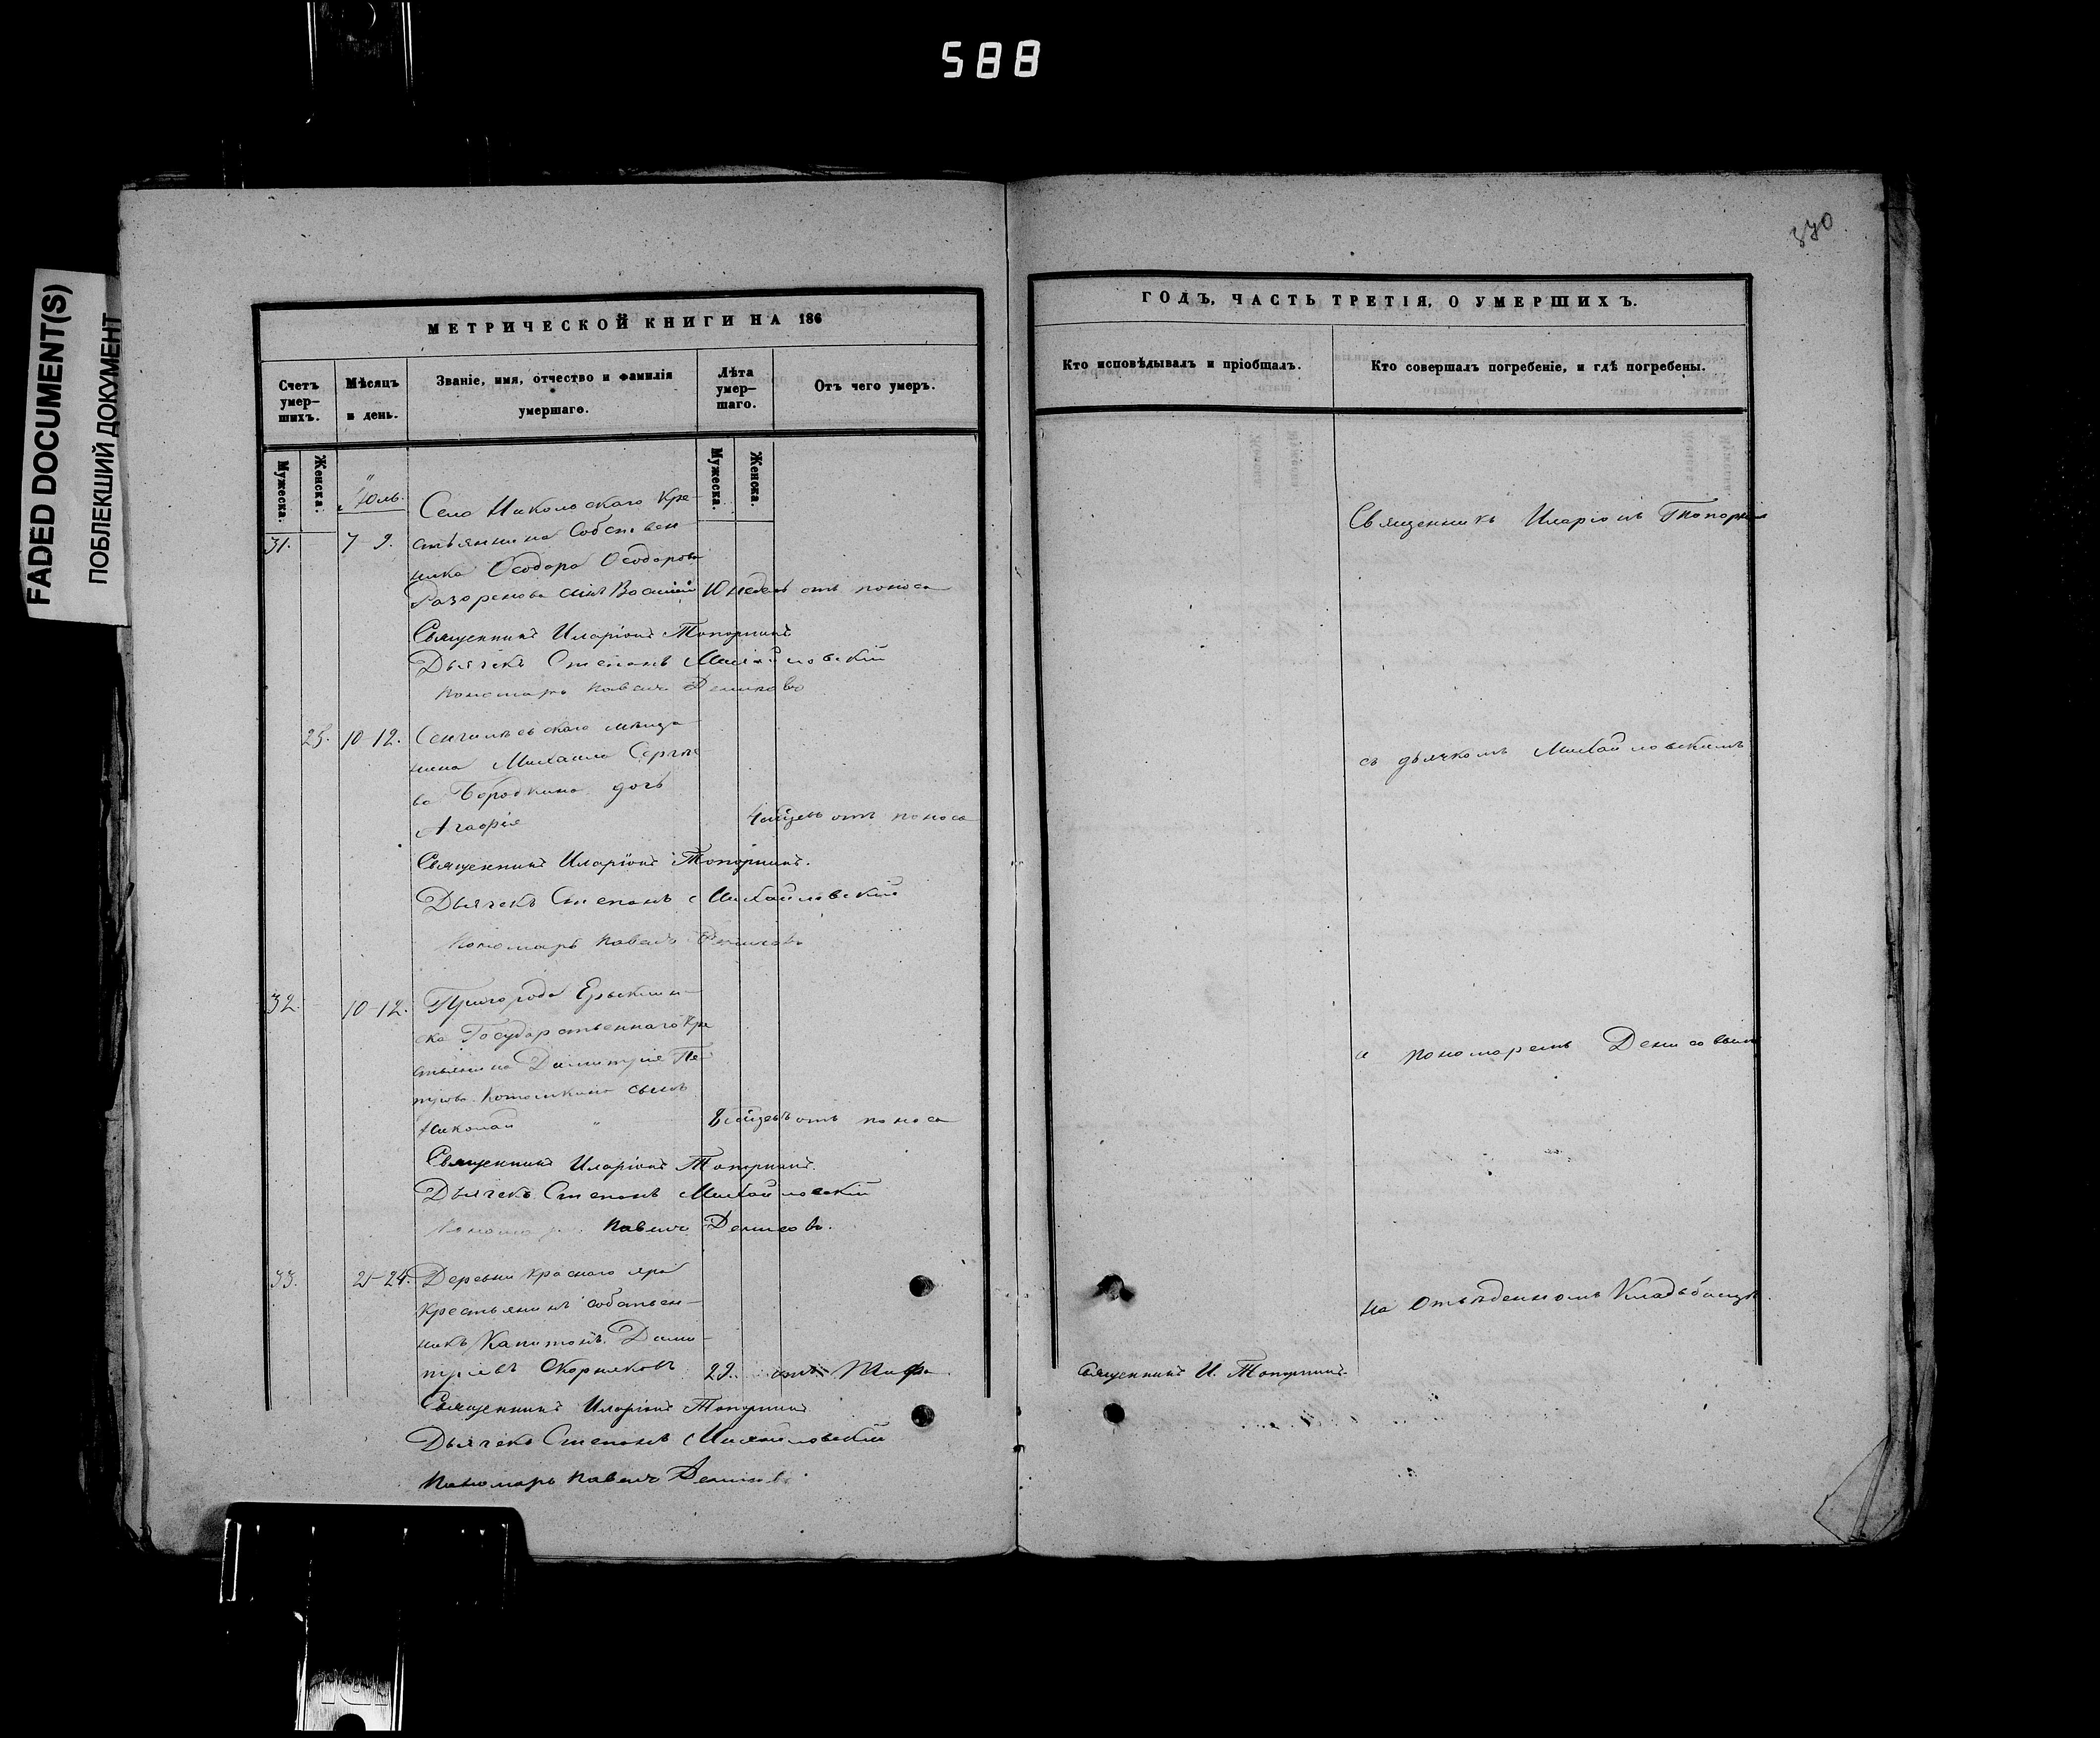 588
FADED DOCUMENT(S)
ПОБЛЕКШИЙ ДОКУМЕНТ
370
МЕТРИЧЕСКОЙ КНИГИ НА 186
Счетъ умер-шихъ.
Мѣсяцъ и день.
Званіе, имя, отчество и фамилія умершаго.
Лѣта умер-шаго.
Отъ чего умеръ.
Мужеска.
Женска.
Мужеска.
Женска.
Іюль.
Села Никольскаго Кре-
31. 7-9. стьянина Собствен-
ника Ѳеодора Ѳеодорова
Разоренова сынъ Василій 10 недель отъ поноса
Священникъ Иларіонъ Топорнинъ
Дьячекъ Степанъ Михайловскій
Пономарь Павелъ Денисовъ
25. 10-12. Сенгилеевскаго мѣща-
нина Михаила Сергѣе-
ва Бородкина дочь
Агафія 4 мѣсец отъ поноса
Священникъ Иларіонъ Топорнинъ.
Дьячекъ Степанъ Михайловскій
Пономарь Павелъ Денисовъ
32. 10-12. Пригорода Ерыклин-
ска Государственнаго Кре-
стьянина Димитрія Пе-
трова сынъ
Николай 8 мѣсец отъ поноса
Священникъ Иларіонъ Топорнинъ.
Дьячекъ Степанъ Михайловскій
Пономарь Павелъ Денисовъ.
33. 21-24. Деревни Краснаго яра
Крестьянинъ собствен-
никъ Капитонъ Дими-
тріевъ Скорняковъ 29. отъ
Священникъ Иларіонъ Топорнинъ
Дьячекъ Степанъ Михайловскій
Пономарь Павелъ Денисовъ
ГОДЪ, ЧАСТЬ ТРЕТІЯ, О УМЕРШИХЪ.
Кто исповѣдывалъ и пріобщалъ.
Кто совершалъ погребеніе, и гдѣ погребены.
Священникъ Иларіонъ Топорнинъ
съ дьячкомъ Михайловскимъ
и пономаремъ Денисовымъ
на Отведенномъ Кладбищѣ.
Священникъ И. Топорнинъ.